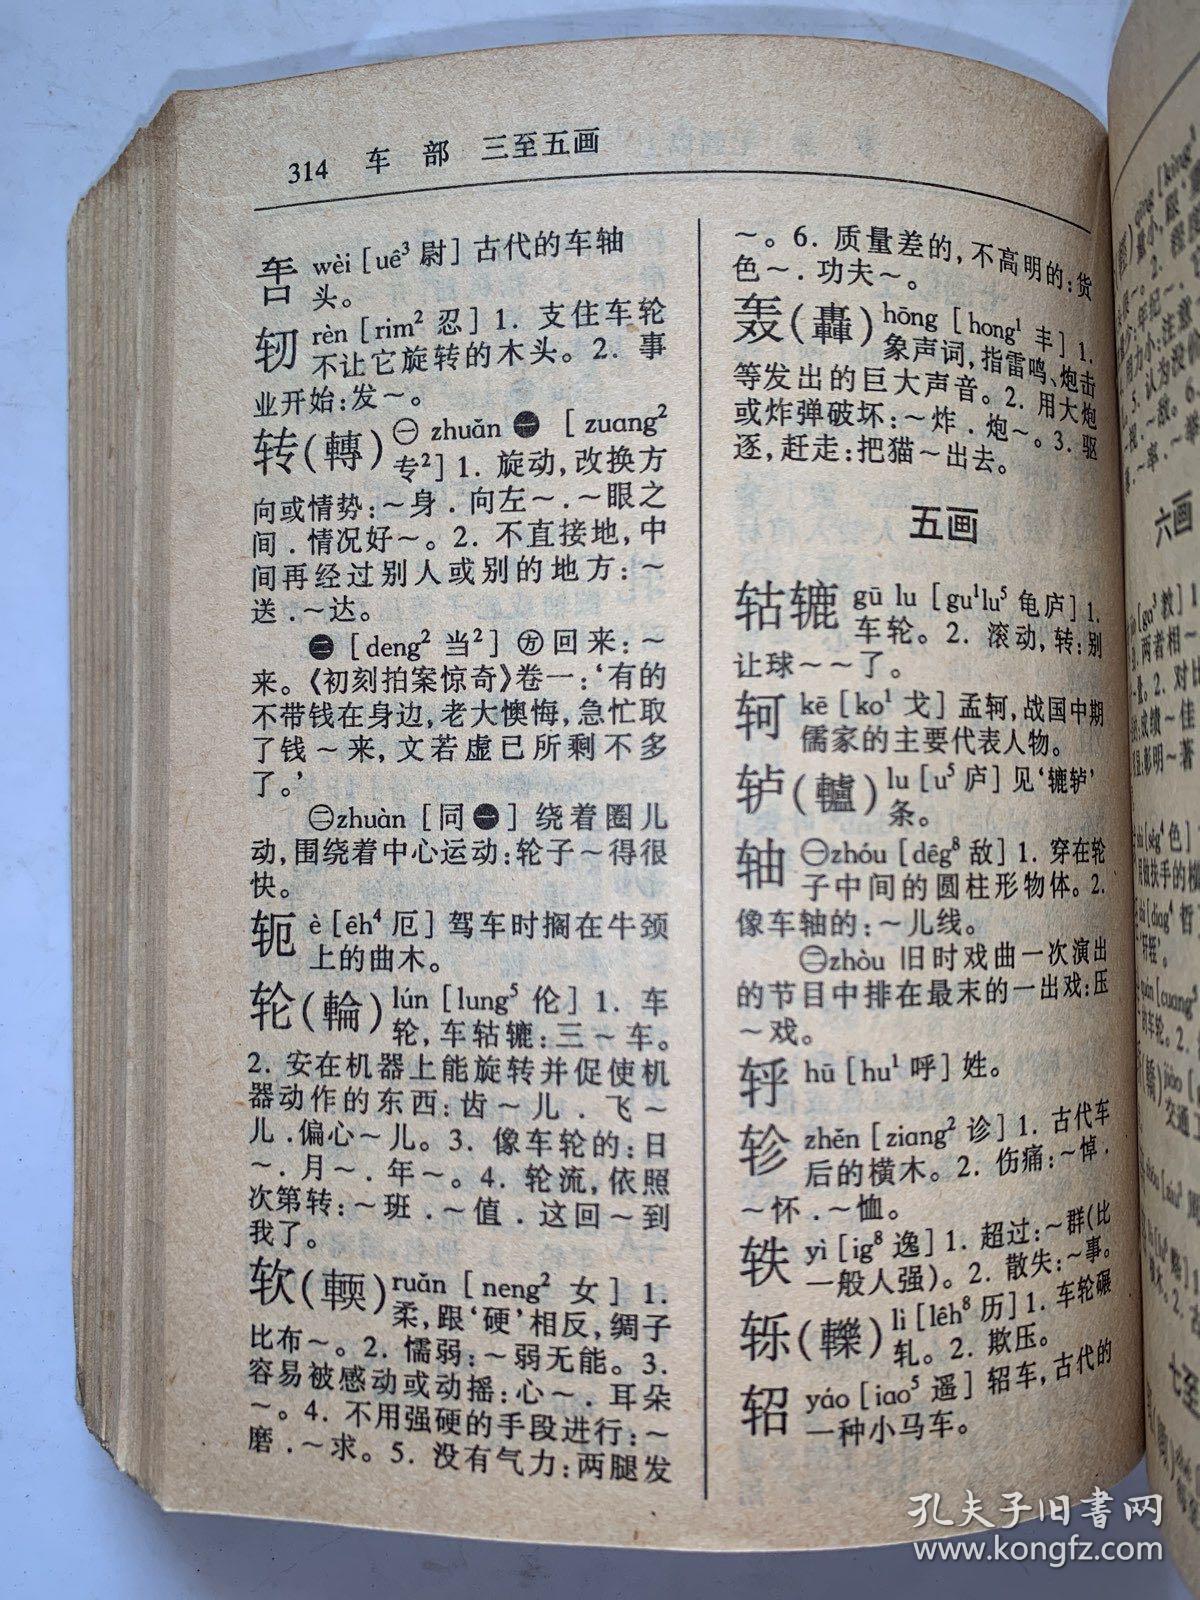 314 车 部 三至五画
軎 wèi [uê³ 尉] 古代的车轴
头。
轫 rèn [rim² 忍] 1. 支住车轮
不让它旋转的木头。2. 事
业开始:发～。
转(轉) ㊀ zhuǎn ❶ [zuang²
专²] 1. 旋动,改换方
向或情势:～身.向左～.～眼之
间.情况好～。2. 不直接地,中
间再经过别人或别的地方:～
送.～达。
❷ [deng² 当²] ㊄回来:～
来。《初刻拍案惊奇》卷一:‘有的
不带钱在身边,老大懊悔,急忙取
了钱～来,文若虚已所剩不多
了。’
㊁zhuàn [同❶] 绕着圈儿
动,围绕着中心运动:轮子～得很
快。
轭 è [êh⁴ 厄] 驾车时搁在牛颈
上的曲木。
轮(輪) lún [lung⁵ 伦] 1. 车
轮,车轱辘:三～车。
2. 安在机器上能旋转并促使机
器动作的东西:齿～儿.飞～
儿.偏心～儿。3. 像车轮的:日
～.月～.年～。4. 轮流,依照
次第转:～班.～值.这回～到
我了。
软(輭) ruǎn [neng² 女] 1.
柔,跟‘硬’相反,绸子
比布～。2. 懦弱:～弱无能。3.
容易被感动或动摇:心～.耳朵
～。4. 不用强硬的手段进行:～
磨.～求。5. 没有气力:两腿发
～。6. 质量差的,不高明的:货
色～.功夫～。
轰(轟) hōng [hong¹ 丰] 1.
象声词,指雷鸣、炮击
等发出的巨大声音。2. 用大炮
或炸弹破坏:～炸.炮～。3. 驱
逐,赶走:把猫～出去。
五画
轱辘 gū lu [gu¹lu⁵ 龟庐] 1.
车轮。2. 滚动,转:别
让球～～了。
轲 kē [ko¹ 戈] 孟轲,战国中期
儒家的主要代表人物。
轳(轤) lu [u⁵ 庐] 见‘辘轳’
条。
轴 ㊀zhóu [dêg⁸ 敌] 1. 穿在轮
子中间的圆柱形物体。2.
像车轴的:～儿线。
㊁zhòu 旧时戏曲一次演出
的节目中排在最末的一出戏:压
～戏。
轷 hū [hu¹ 呼] 姓。
轸 zhěn [ziang² 诊] 1. 古代车
后的横木。2. 伤痛:～悼.
～怀.～恤。
轶 yì [ig⁸ 逸] 1. 超过:～群(比
一般人强)。2. 散失:～事。
轹(轢) lì [lêh⁸ 历] 1. 车轮碾
轧。2. 欺压。
轺 yáo [iao⁵ 遥] 轺车,古代的
一种小马车。
六画
孔夫子旧书网
www.kongfz.com